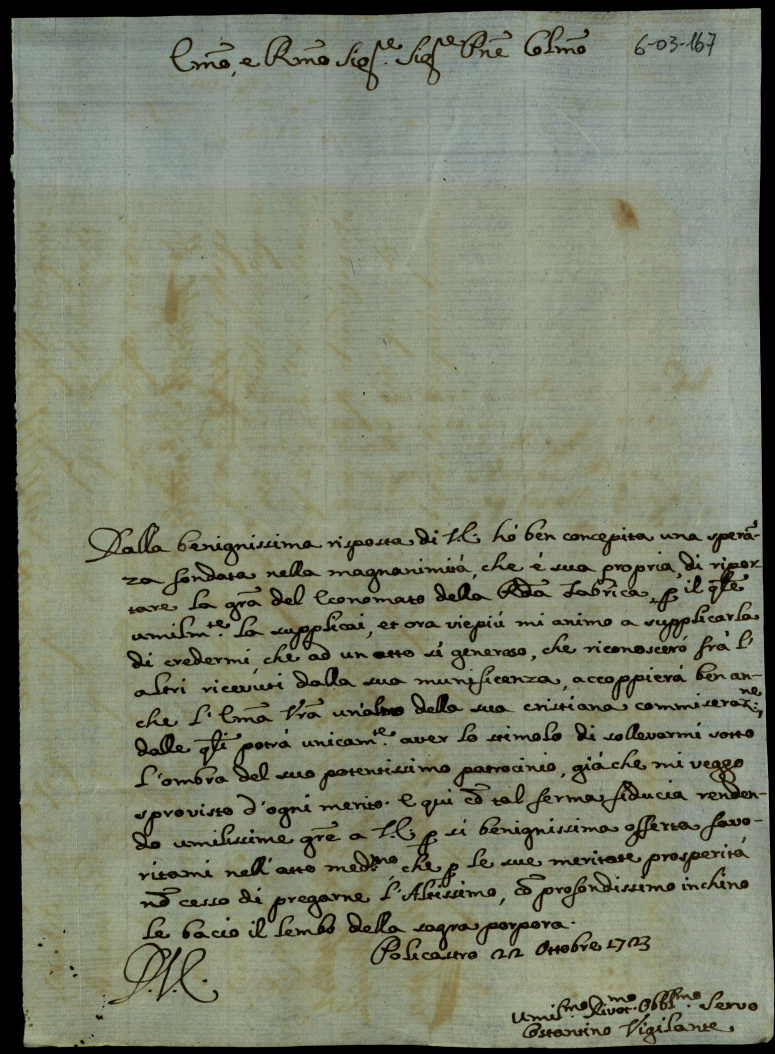 Emõ, e Rmõ Sig.re Sig.re Pñe Colmõ
6-03-167
Dalla benignissima risposta di V.E. hó ben concepita una sperã-
za fondata nella magnanimitá, che é sua propria, di ripor-
tare la grã del Economato della Rdã Fabrica, p il qlẽ
umilm.te la supplicai, et ora viepiú mi animo a supplicarla
di credermi, che ad un atto sí generoso, che riconosceró frá l'
altri ricevuti dalla sua munificenza, accoppierá ben an-
che l'Emã Vrã un'altro della sua cristiana commiseraz.ne,
dalle qli potrá unicam.te aver lo stimolo di sollevarmi sotto
l'ombra del suo potentissimo patrocinio, giá che mi veggo
sprovisto d'ogni merito. E qui cõ tal ferma fiducia renden-
do umilissime grẽ a V.E. p sí benignissima offerta favo-
ritami nell'atto med.mo, che p le sue meritate prosperitá
nõ cesso di pregarne l'Altissimo, cõ profondissimo inchino
le bacio il lembo della sagra porpora.
Policastro 22 Ottobre 1723
D.V.E.
Umil.mo Divot.mo Obbl.mo Servo
Costantino Vigilante